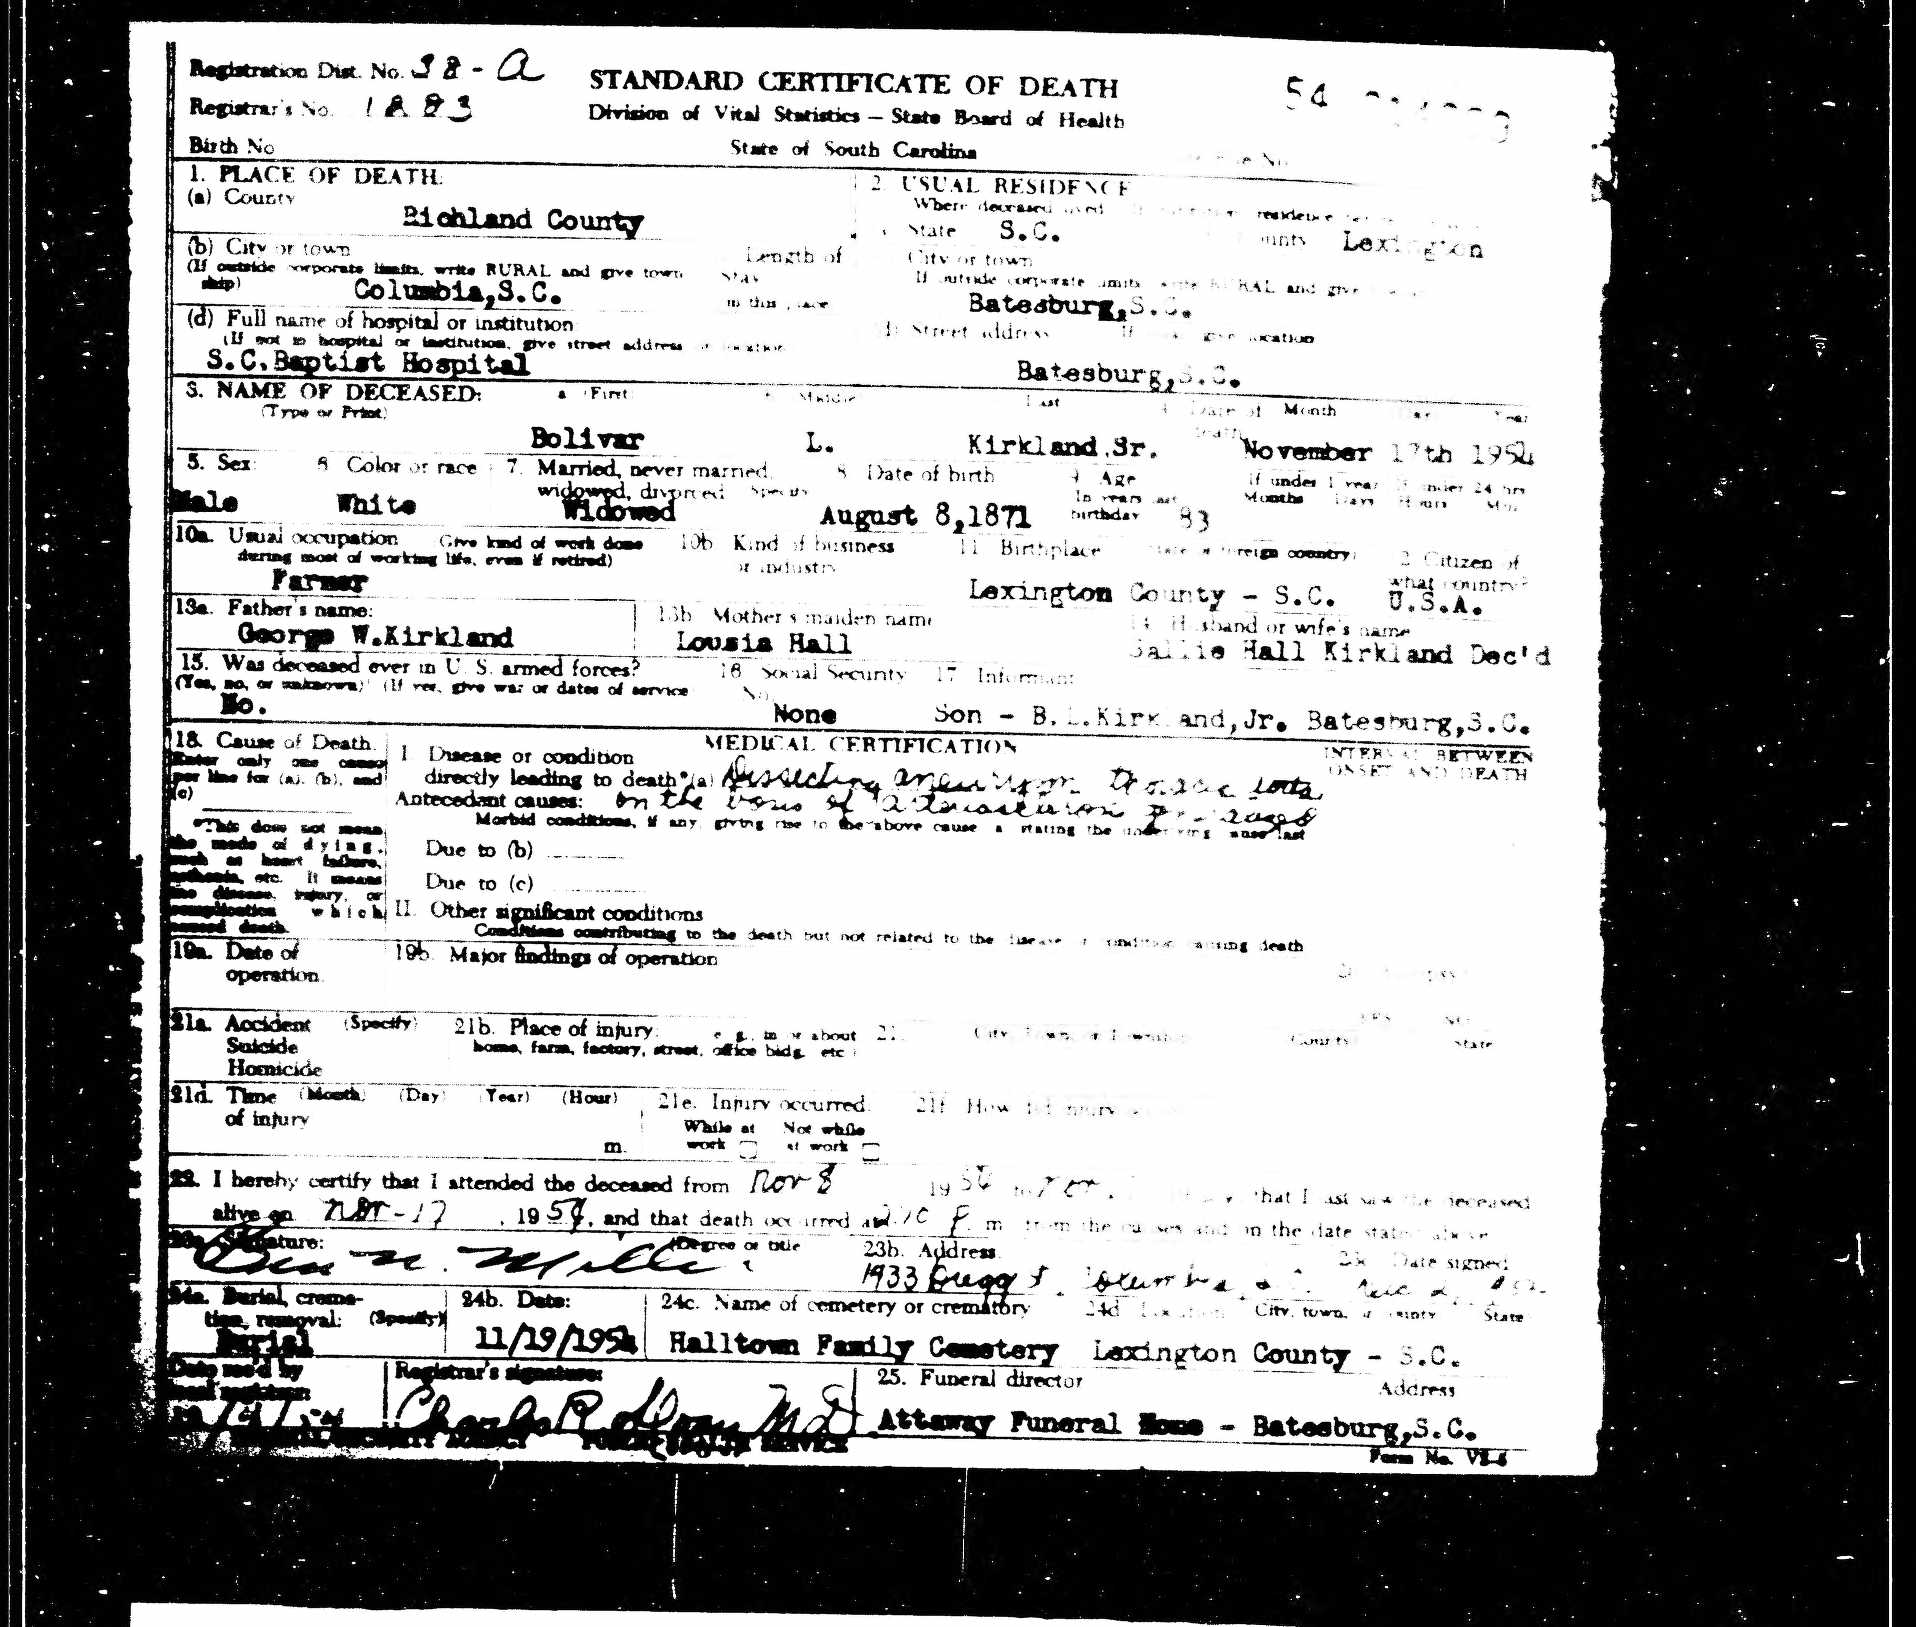 Registration Dist. No. 38-A
STANDARD CERTIFICATE OF DEATH
54
Registrar's No. 1883
Division of Vital Statistics — State Board of Health
Birth No
State of South Carolina
1. PLACE OF DEATH:
2. USUAL RESIDENCE
(a) County
Where deceased lived residence
Richland County
State S.C. Lexington
(b) City or town
Length of
City or town
(If outside corporate limits, write RURAL and give town
Stay
If outside corporate limits write RURAL and give
ship)
Columbia,S.C.
in this place
Batesburg,S.C.
(d) Full name of hospital or institution
Street address
(If not in hospital or institution, give street address or location
give location
S.C.Baptist Hospital
Batesburg,S.C.
3. NAME OF DECEASED:
a (First
Middle
Last
4 Date of Month Day Year
(Type or Print)
death
Bolivar L. Kirkland.Sr. November 17th 1954
5. Sex: 6 Color or race 7. Married, never married, 8. Date of birth 9 Age If under 1 year If under 24 hrs
widowed, divorced Specify
In years last Months Days Hours Min
birthday
Male White Widowed August 8,1871 83
10a. Usual occupation Give kind of work done 10b Kind of business 11 Birthplace State or foreign country) 12 Citizen of
during most of working life, even if retired)
or industry
what country?
Farmer
Lexington County - S.C. U.S.A.
13a. Father's name:
13b Mother's maiden name
14 Husband or wife's name
George W.Kirkland
Lousia Hall
Sallie Hall Kirkland Dec'd
15. Was deceased ever in U. S. armed forces? 16 Social Security 17 Informant
(Yes, no, or unknown) (If yes, give war or dates of service
No.
No.
None
Son - B.L.Kirkland,Jr. Batesburg,S.C.
18. Cause of Death.
MEDICAL CERTIFICATION
INTERVAL BETWEEN
ONSET AND DEATH
Enter only one cause
per line for (a), (b), and
(c)
I Disease or condition
directly leading to death*(a) Dissecting aneurysm thoracic aorta
Antecedant causes: on the basis of
Morbid conditions, if any, giving rise to the above cause a stating the underlying cause last
*This does not mean
the mode of dying,
such as heart failure,
asthenia, etc. It means
the disease, injury, or
complication which
caused death.
Due to (b)
Due to (c)
II. Other significant conditions
Conditions contributing to the death but not related to the disease or condition causing death
19a. Date of
operation.
19b. Major findings of operation
21a. Accident (Specify)
Suicide
Homicide
21b. Place of injury: e g., in or about
home, farm, factory, street, office bldg. etc)
City, Town, or Township County State
21d. Time (Month) (Day) (Year) (Hour)
of injury
m.
21e. Injury occurred.
While at Not while
work at work
21f How did injury
22. I hereby certify that I attended the deceased from Nov 8 1954 to Nov. that I last saw the deceased
alive on Nov-17, 1954, and that death occurred at P. m from the causes and on the date stated above
23a. Signature: (Degree or title
23b. Address.
23c Date signed
1933 Columbia
24a. Burial, crema-
tion, removal: (Specify)
Burial
24b. Date:
11/19/1954
24c. Name of cemetery or crematory
Halltown Family Cemetery
24d Location City, town, or county State
Lexington County - S.C.
Date rec'd by
local registrar:
Registrar's signature:
25. Funeral director
Address
Attaway Funeral Home - Batesburg,S.C.
PUBLIC HEALTH SERVICE
Form No. VS-6